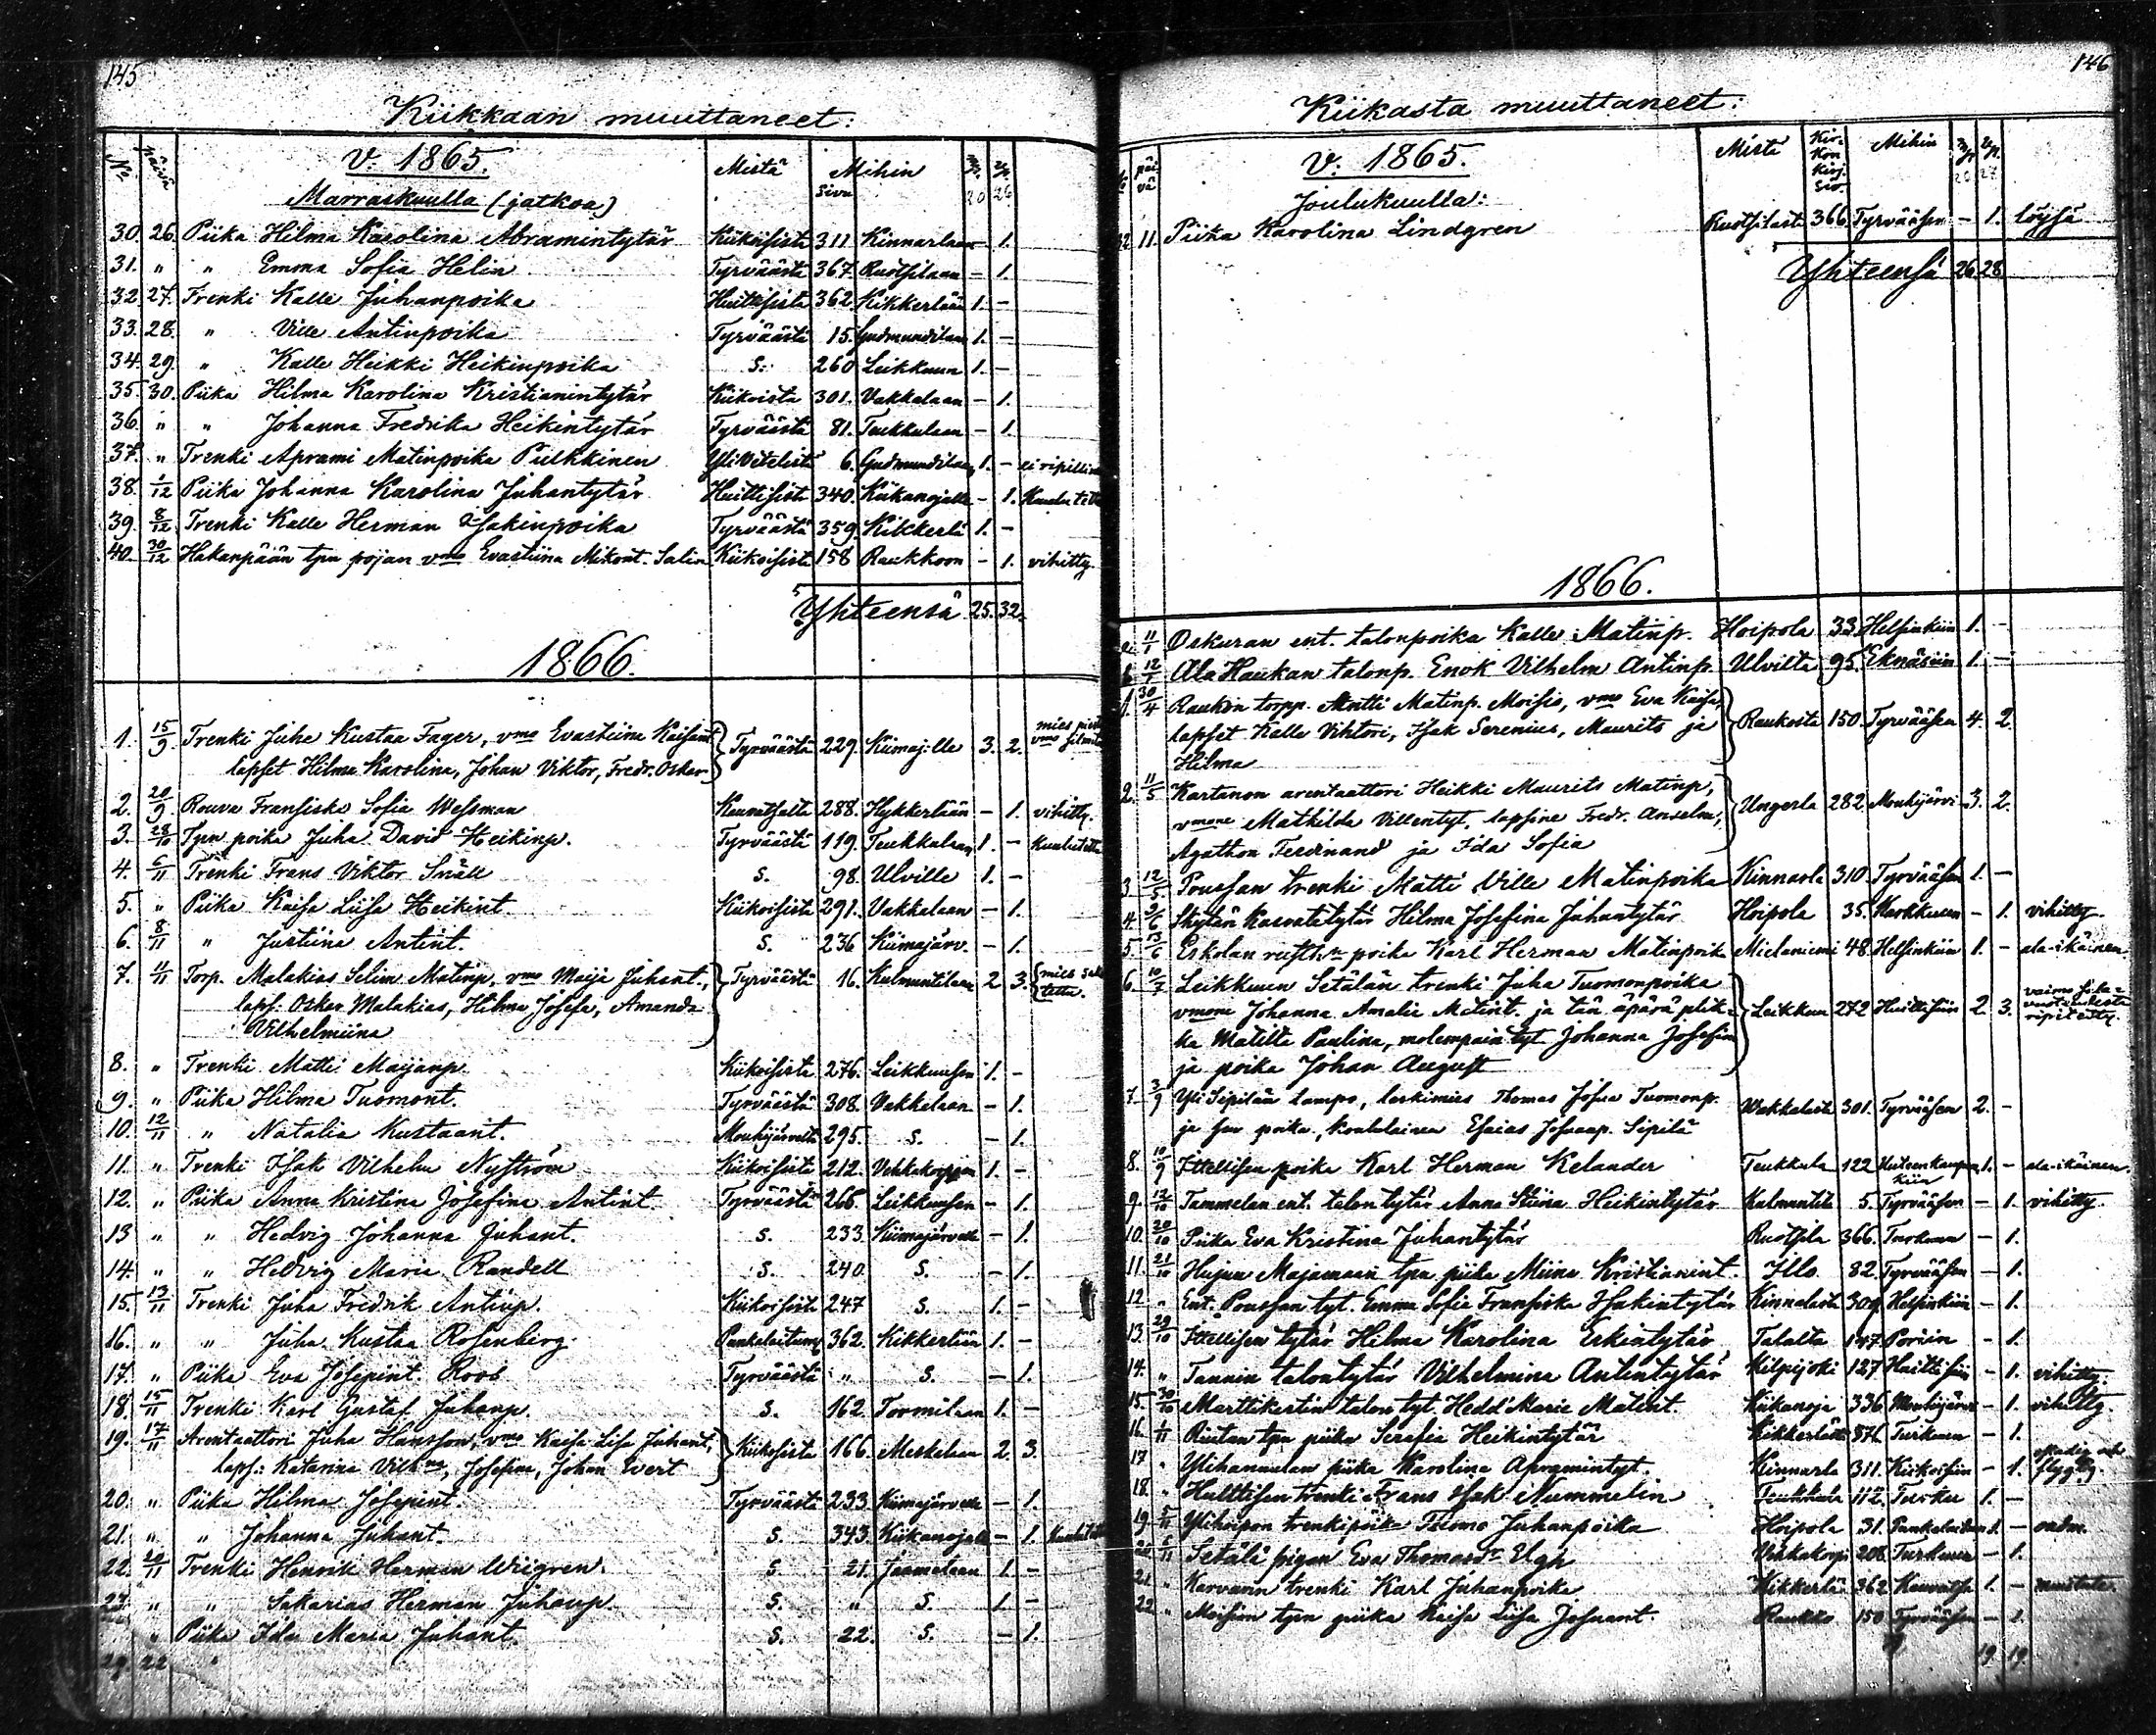 145
Kiikkaan muuttaneet:
No päivä v. 1865. Mistä Mihin
sivu
Marraskuulla (jatkoa)
30. 26. Piika Hilma Karolina Abramintytär Kiikoisista 311 Kinnarlaan – 1.
31. " " Emma Sofia Helin Tyrväästä 367. Ruotsilaan – 1.
32. 27. Trenki Kalle Juhanpoika Huittisista 362. Kikkerlään 1. –
33. 28. " Ville Antinpoika Tyrväästä 15. Gudmundilaan 1. –
34. 29. " Kalle Heikki Heikinpoika s. 260 Leikkuun 1. –
35. 30. Piika Hilma Karolina Kristianintytär Kiikoista 301. Vakkalaan – 1.
36. " " Johanna Fredrika Heikintytär Tyrväästä 81. Teukkulaan – 1.
37. " Trenki Aprami Matinpoika Pulkkinen Ylivetelistä 6. Gudmundilaan 1. –
38. 1/12 Piika Johanna Karolina Juhantytär Huittisista 340. Kiikanojalle – 1.
39. 8/12 Trenki Kalle Herman Isakinpoika Tyrväästä 359. Kikkerlä 1. –
40. 30/12 Hakanpään tpn pojan vmo Evastiina Mikont. Salin Kiikoisista 158 Raukkoon – 1. vihitty.
Yhteensä 25. 32.
1866.
1. 15/9 Trenki Juha Kustaa Fager, vmo Evastiina Kaisant. Tyrväästä 229. Kiimajlle 3. 2.
lapset Hilma Karolina, Johan Viktor, Fredr. Oskar
2. 20/9 Rouva Fransiska Sofia Wessman 288. – 1. vihitty.
3. 28/10 Tpn poika Juha David Heikinp. Tyrväästä 119. Teukkulaan 1. – kuulutettu
4. 6/11 Trenki Frans Viktor Snäll s. 98. Ulville 1. –
5. " Piika Kaisa Liisa Heikint. Kiikoisista 291. Vakkalaan – 1.
6. 8/11 " Justiina Antint. s. 236 Kiimajärv. – 1.
7. 11/11 Torp. Malakias Selim Matinp., vmo Maija Juhant., Tyrväästä 16. Kulmuntilaan 2 3.
laps: Oskar Malakias, Hilma Josefa, Amanda
Vilhelmiina
8. " Trenki Matti Maijanp. Kiikoisista 276. Leikkuusen 1. –
9. " Piika Hilma Tuomont. Tyrväästä 308. Vakkalaan – 1.
10. 12/11 " Natalia Kustaant. Mouhijärveltä 295. s. – 1.
11. " Trenki Isak Vilhelm Nyström Kiikoisista 212. 1. –
12. " Piika Anna Kristina Josefina Antint. Tyrväästä 266. Leikkuusen – 1.
13 " " Hedvig Johanna Juhant. s. 233. Kiimajärvelle – 1.
14. " " Hedvig Maria Randell s. 240 s. – 1.
15. 13/11 Trenki Juha Fredrik Antinp. Kiikoisista 247 s. 1. –
16. " " Juha Kustaa Rosenberg. 362. Kikkerlään 1. –
17. " Piika Eva Josepint. Roos Tyrväästä " s. – 1.
18. 15/11 Trenki Karl Gustaf Juhanp. s. 162 Toomilaan 1. –
19. 17/11 Arentaattori Juha Hansson, vmo Kaisa Lisa Juhant., Kiikoisista 166. Meskalaan 2 3.
laps: Katarina Vilhma, Josefina, Johan Evert
20. " Piika Hilma Josepint. Tyrväästä 233. Kiimajärvelle – 1.
21. " " Johanna Juhant. s. 343. Kiikanojalle – 1.
22. 20/11 Trenki Henrik Herman Wiigren. s. 21. 1. –
23. " " Sakarias Herman Juhanp. s. " s. 1. –
" Piika Ida Maria Juhant. s. 22. s. – 1.
146
Kiikasta muuttaneet:
No päivä v. 1865. Mistä Kirkon kirj. siv. Mihin
Joulukuulla:
32. 11. Piika Karolina Lindgren Ruotsilasta 366. Tyrvääsen – 1. löysä
Yhteensä 26. 28.
1866.
11/1 Oskuran ent. talonpoika Kalle Matinp. Hoipola 33. Helsinkiin 1. –
b. 12/1 Ala Haukan talonp. Enok Vilhelm Antinp. Ulvilta 95. 1. –
1. 30/4 Raukon torpp. Antti Matinp. Moisio, vmo Eva Kaisa, Raukosta 150. Tyrvääsen 4. 2.
lapset Kalle Vihtori, Isak Serenius, Maurits ja
Hilma
2. 11/5 Kartanon arentaattori Heikki Maurits Matinp., Ungerla 282. Mouhijärvi 3. 2.
vmone Mathilda Villentyt. lapsine Fredr. Anselm,
Agathon Ferdinand ja Ida Sofia
3. 12/5 Poussan trenki Matti Ville Matinpoika Kinnarla 310. Tyrvääsen 1. –
4. 5/6 Skytän kasvatetytär Hilma Josefina Juhantytär Hoipola 35. Karkkuun – 1. vihitty.
5. 13/6 Eskolan poika Karl Herman Matinpoika 48. Helsinkiin 1. – ala-ikäinen.
6. 10/7 Leikkuun Setälän trenki Juha Tuomonpoika Leikkuu 272 Huittisiin 2. 3.
vmone Johanna Amalia Matint. ja tän äpärä
Matilta Paulina, molempain tyt Johanna Josefina
ja poika Johan August
7. 3/9 Yli Sipilän lampo, leskimies Thomas Josua Tuomonp. Wakkalasta 301. Tyrvääsen 2. –
ja poika, koululainen Esaias Josuap. Sipilä
8. 10/9 Itsellisen poika Karl Herman Kelander Teukkula 122 1. – ala-ikäinen.
9. 12/10 Tammelan ent. talon tytär Anna Stiina Heikintytär Kulmuntila 5. Tyrvääsen – 1. vihitty.
10. 20/10 Piika Eva Kristina Juhantytär Ruotsila 366. Turkuun – 1.
11. 21/10 Hujun Majamaan tpn piika Miina Kristianint. Illo 82. Tyrvääsen – 1.
12. " Ent. Poussan tyt. Emma Sofia Fransiska Isakintytär Kinnalasta 309. Helsinkiin – 1.
13. 29/10 Itsellisen tytär Hilma Karolina Erkintytär 147. Poriin – 1.
14. " Tannin talontytär Vilhelmina Antintytär Kilpijoki 127 Huittisiin – 1. vihitty.
15. 30/10 Marttikertin talon tyt. Hedd Maria Matint. Kiikanoja 336. Mouhijärvi – 1. vihitty
16. 1/11 Rintan tpn piika Serafia Heikintytär Kikkerlästä 376. Turkuun – 1.
17. " Ylihannulan piika Karolina Apramintyt. Kinnarla 311. Kiikoisiin – 1.
18. " Hulttisen trenki Frans Isak Nummelin Teukkula 112. Turku 1. –
19. 5/11 Ylihoipon trenkipoika Tuomo Juhanpoika Hoipola 31. 1. –
20. 6/11 Setälä pigan Eva Thomasdr Elgh 208. Turkuun – 1.
21. " Karvarin trenki Karl Juhanpoika Kikkerlä 362. 1. –
22. " Moision tpn piika Kaisa Liisa Josuant. Raukko 150 Tyrvääsen – 1.
19. 19.